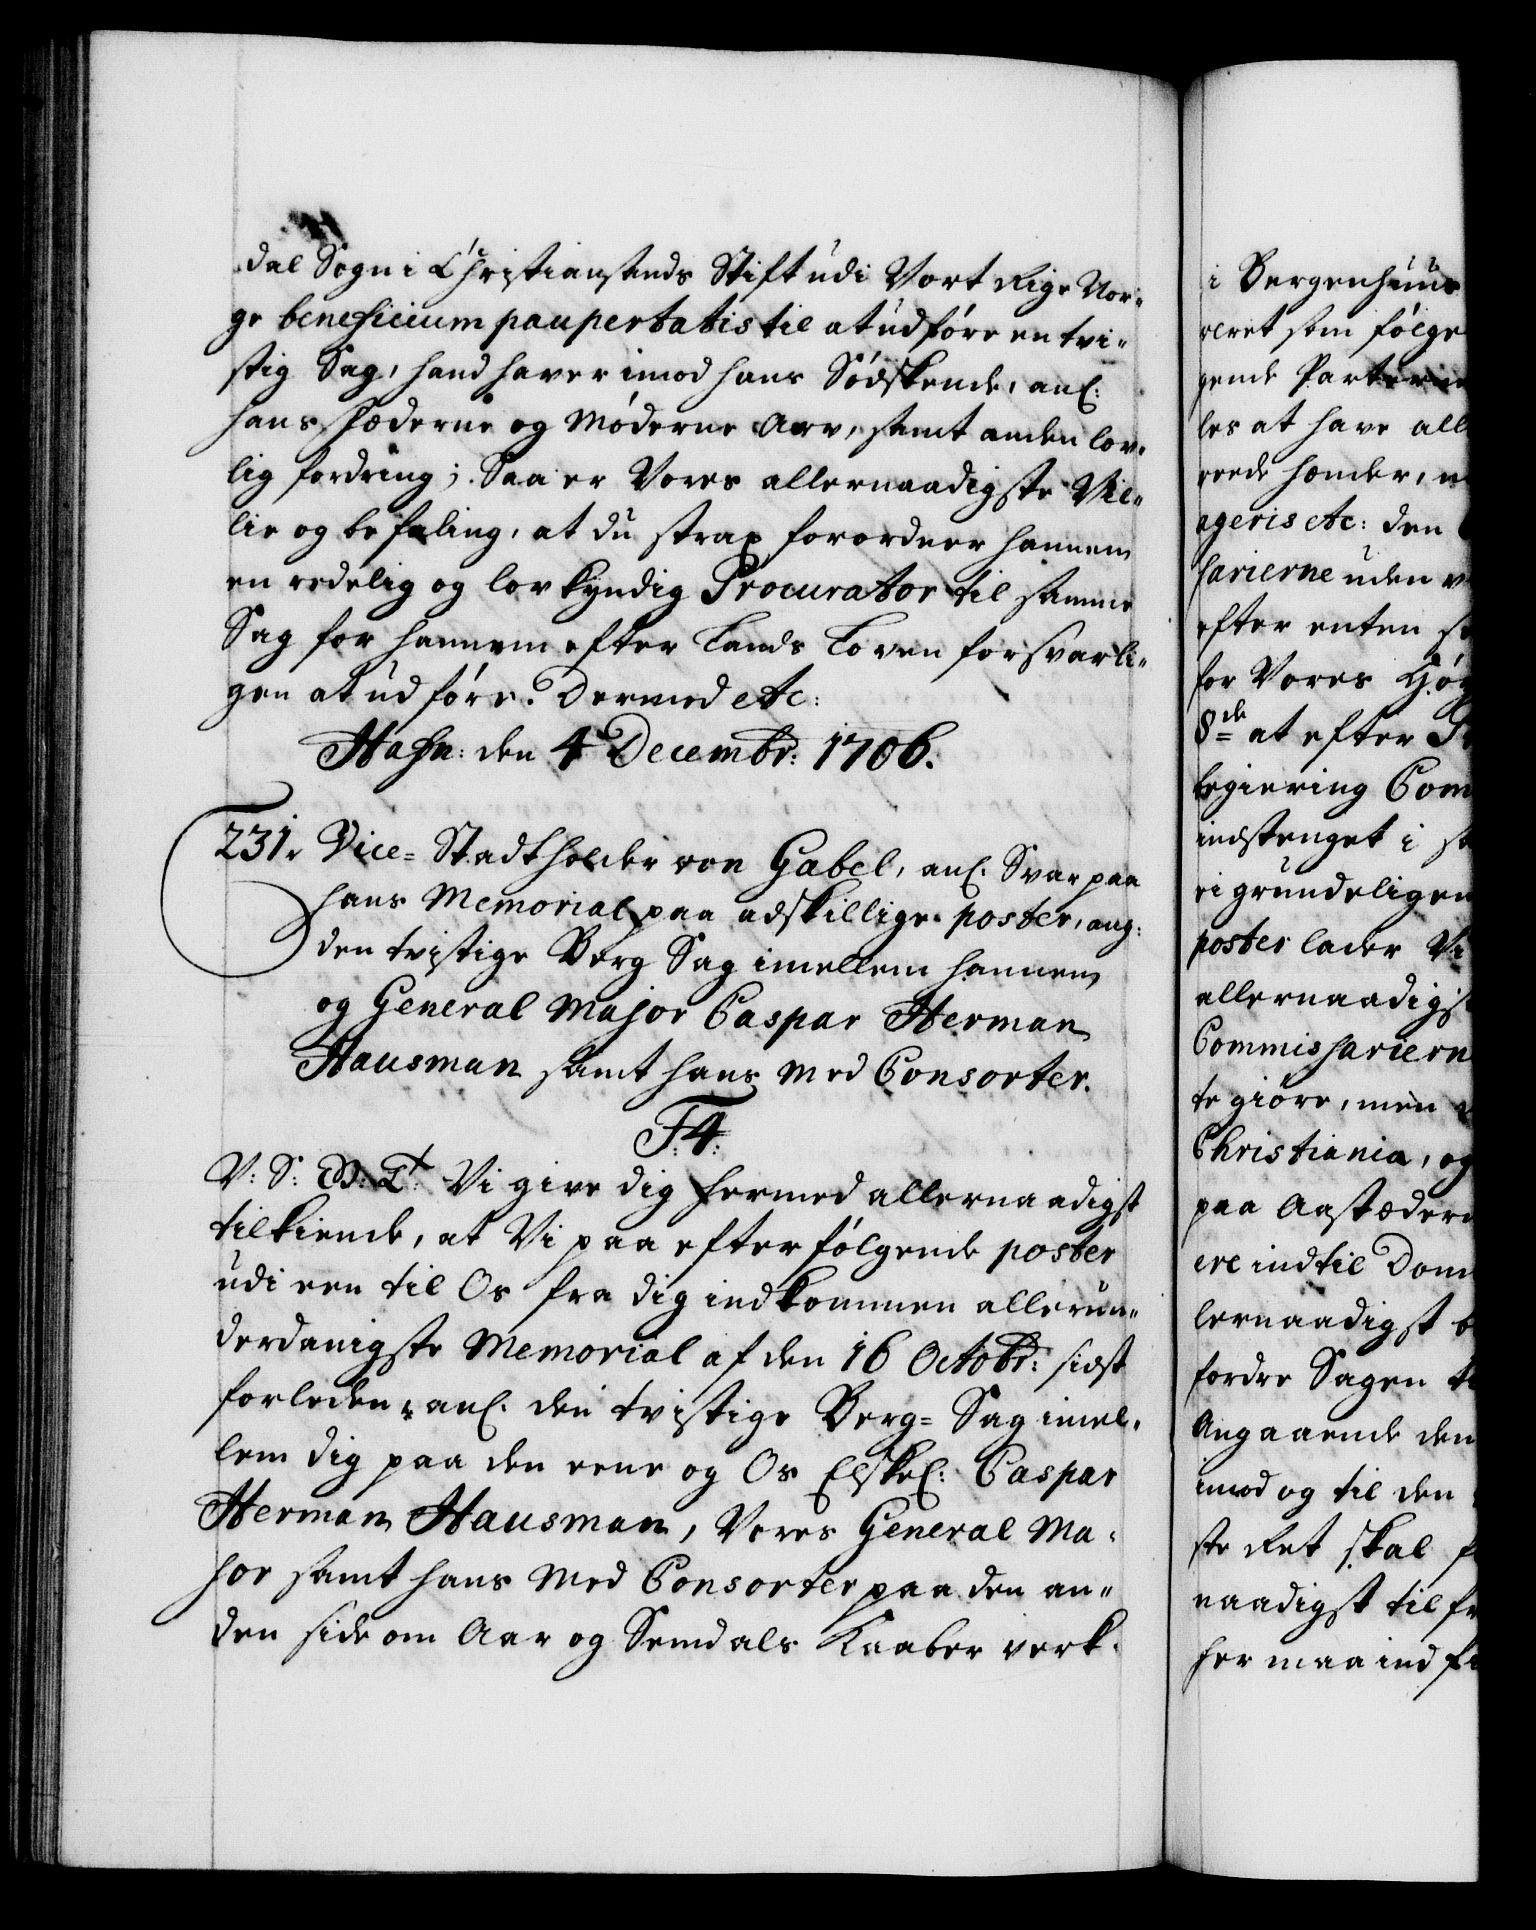 dal Sogn i Christiansands Stift udi Vort Rige Nor-
ge beneficium paupertatis til at udföre en tvi-
stig Sag, hand haver imod hans Södskende, anl:
hans Fæderne og Möderne Arv, samt anden lov-
lig fordring; Saa er Vores allernaadigste Vil-
lie og befaling, at du strax forordner hannem
en redelig og lovkyndig Procurator til samme
Sag for hannem efter Lands Loven forsvarli-
gen at udföre. Dermed etc:
Hafn: den 4 Decembr: 1706.
231. Vice-Stadtholder von Gabel, anl. Svar paa
hans Memorial paa adskillige poster, ang:
den tvistige Berg Sag imellem hannem
og General Major Caspar Herman
Hausman samt hans Med Consorter.
F. 4.
V: S: G: T: Vi give dig hermed allernaadigst
tilkiende, at Vi paa efterfölgende poster
udi een til Os fra dig indkommen allerun-
derdanigste Memorial af den 16 Octobr: sidst
forleden, anl. den tvistige Berg-Sag imel-
lem dig paa den eene og Os Elskel: Caspar
Herman Hausman, Vores General Ma-
jor samt hans Med Consorter paa den an-
den side om Aar og Semdals Kaaber verk.
i Bergenhuus
som fölge
gende Parterne
les at have all
reede hænder,
ageris etc: den
sarierne uden
efter enten
for Vores Höy
8de at efter
Regiering Com
indstenget i
ri grundeligen
poster lader Vi
allernaadigst
Commissarierne
te giöre, men
Christiania, og
paa Aastæderne
ere indtil Dom
lernaadigst
fordre Sagen
Angaaende den
imod og til den
ste Ret skal
naadigst til
her maa ind